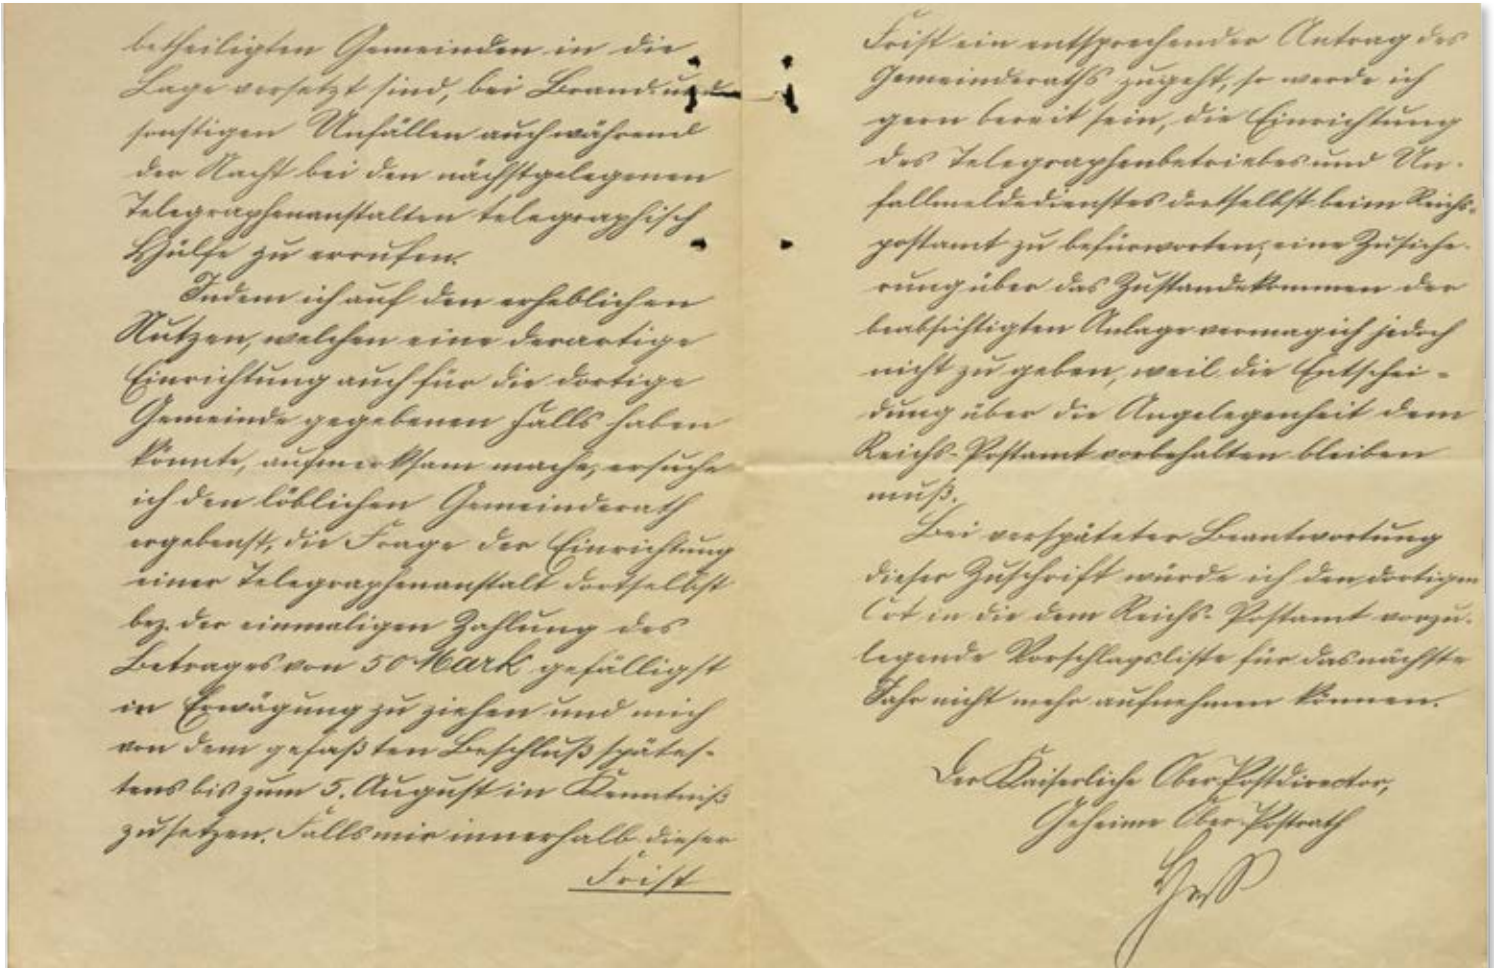 betheiligten Gemeinden in die
Lage versetzt sind, bei Brand- und
sonstigen Unfällen auch während
der Nacht bei den nächstgelegenen
Telegraphenanstalten telegraphisch
Hülfe zu errufen.
Indem ich auf den erheblichen
Nutzen, welchen eine derartige
Einrichtung auch für die dortige
Gemeinde gegebenen Falls haben
könnte, aufmerksam mache, ersuche
ich den löblichen Gemeinderath
ergebenst, die Frage der Einrichtung
einer Telegraphenanstalt dortselbst
bez. der einmaligen Zahlung des
Betrages von 50 Mark gefälligst
in Erwägung zu ziehen und mich
von dem gefaßten Beschluß spätes-
tens bis zum 5. August in Kenntniß
zu setzen. Falls mir innerhalb dieser
Frist
Frist ein entsprechender Antrag des
Gemeinderaths zugeht, so werde ich
gern bereit sein, die Einrichtung
des Telegraphenbetriebes und Un-
fallmeldedienstes dortselbst beim Reichs-
postamt zu befürworten; eine Zusiche-
rung über das Zustandekommen der
beabsichtigten Anlage vermag ich jedoch
nicht zu geben, weil die Entschei-
dung über die Angelegenheit dem
Reichs-Postamt vorbehalten bleiben
muß.
Bei verspäteter Beantwortung
dieser Zuschrift würde ich den dortigen
Ort in die dem Reichs-Postamt vorzu-
legende Vorschlagsliste für das nächste
Jahr nicht mehr aufnehmen können.
Der Kaiserliche Ober-Postdirector,
Geheime Ober-Postrath
Heß